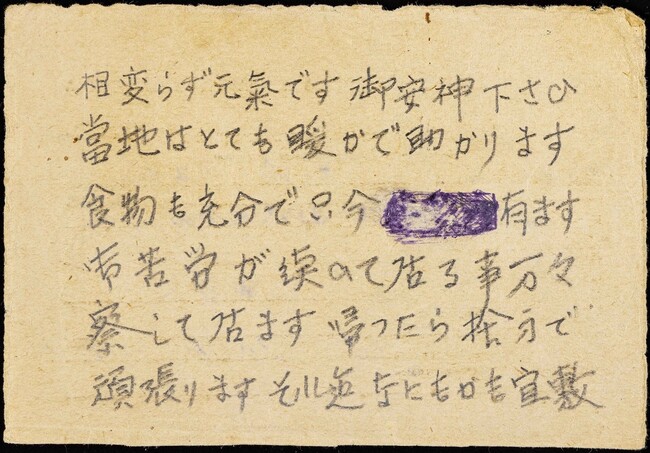 相変らず元氣です 御安神下さひ
當地はとても暖かで助かります
食物も充分で只今 有ます
御苦労が續ひて居る事万々
察して居ます 帰つたら捨身で
頑張ります それ迄なにもかも宜敷